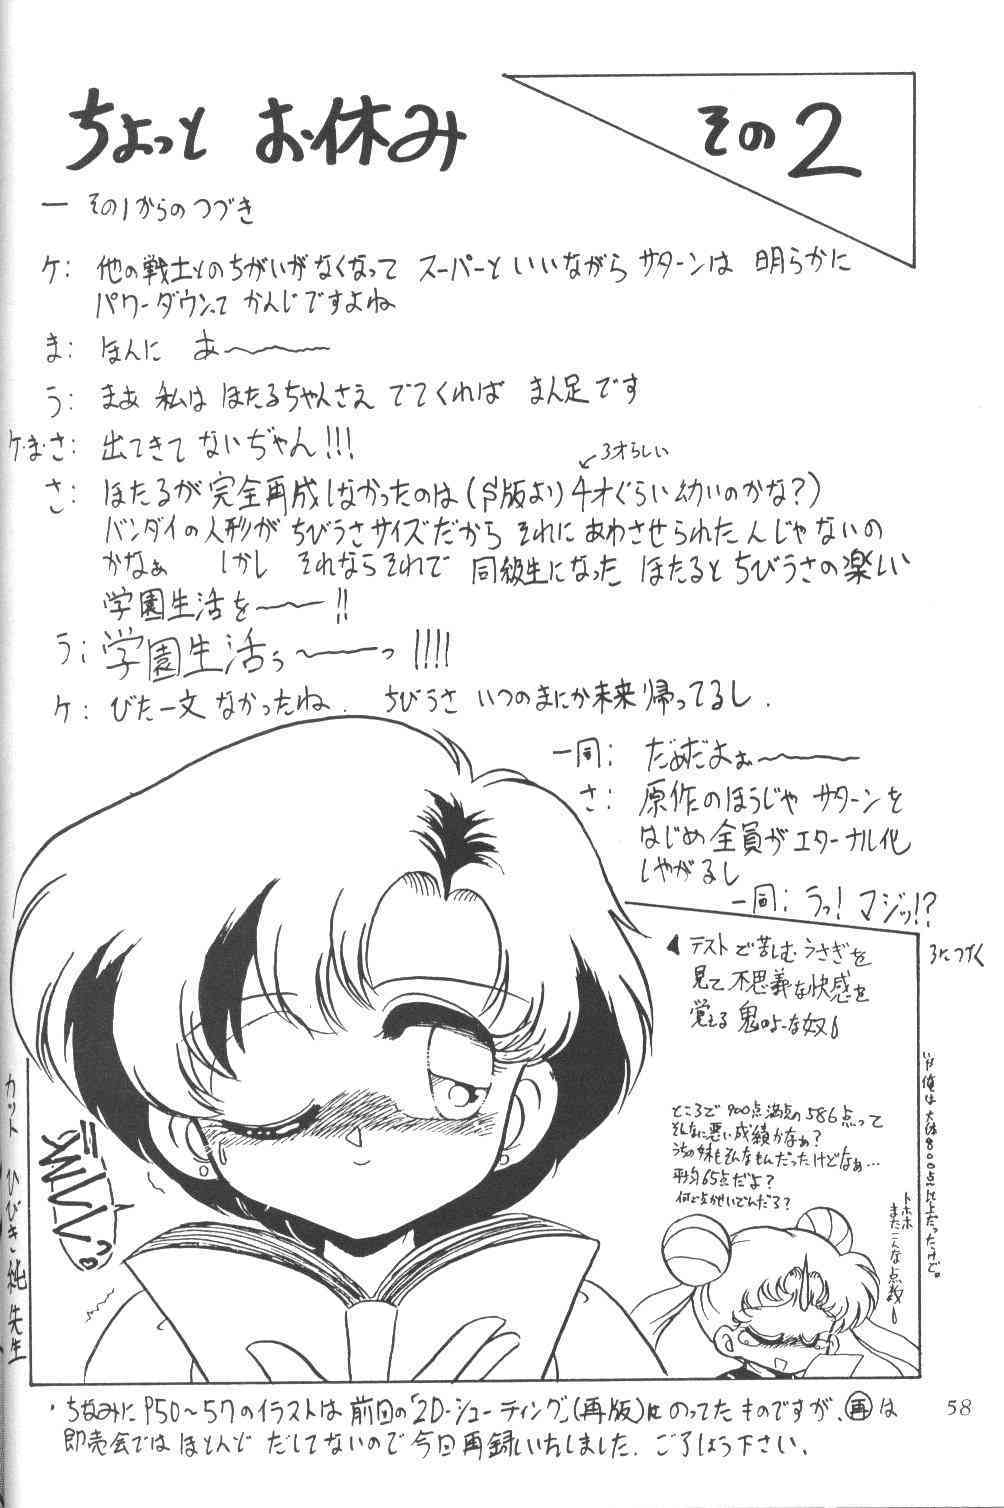 ちょっと お休み
その2
― その1からのつづき
ケ: 他の戦士とのちがいがなくなって スーパーと いいながら サターンは 明らかに
パワーダウンって かんじですよね
ま: ほんに あ〜〜〜
う: まあ 私は ほたるちゃんさえ でてくれば まん足です
ケ・ま・さ: 出てきて ないぢゃん!!!
3才らしい
さ: ほたるが 完全再成しなかったのは (S版より 4才ぐらい 幼いのかな?)
バンダイの人形が ちびうさサイズだから それに あわさせられた んじゃないの
かなぁ しかし それならそれで 同級生になった ほたると ちびうさの楽しい
学園生活を〜――!!
う: 学園生活ぅ〜――っ!!!!
ケ: びた一文 なかったね. ちびうさ いつのまにか未来帰ってるし.
一同: だめだよぉ〜〜〜
さ: 原作のほうじゃ サターンを
はじめ 全員が エターナル化
しやがるし
一同: うっ! マジッ!?
3につづく
◀ テストで苦しむうさぎを
見て 不思議な快感を
覚える 鬼のよーな奴
ところで 900点満点の 586点って
そんなに悪い成績かなぁ?
うちの妹もそんなもんだったけどなぁ…
平均65点だよ?
トホホ
またこんな点数
カット ひびき純先生
・ちなみに P50〜57のイラストは 前回の「2D・シューティング」(再版)に のってた ものですが、再は
即売会では ほとんど だしてないので 今回再録いたしました. ご了しょう下さい.
58